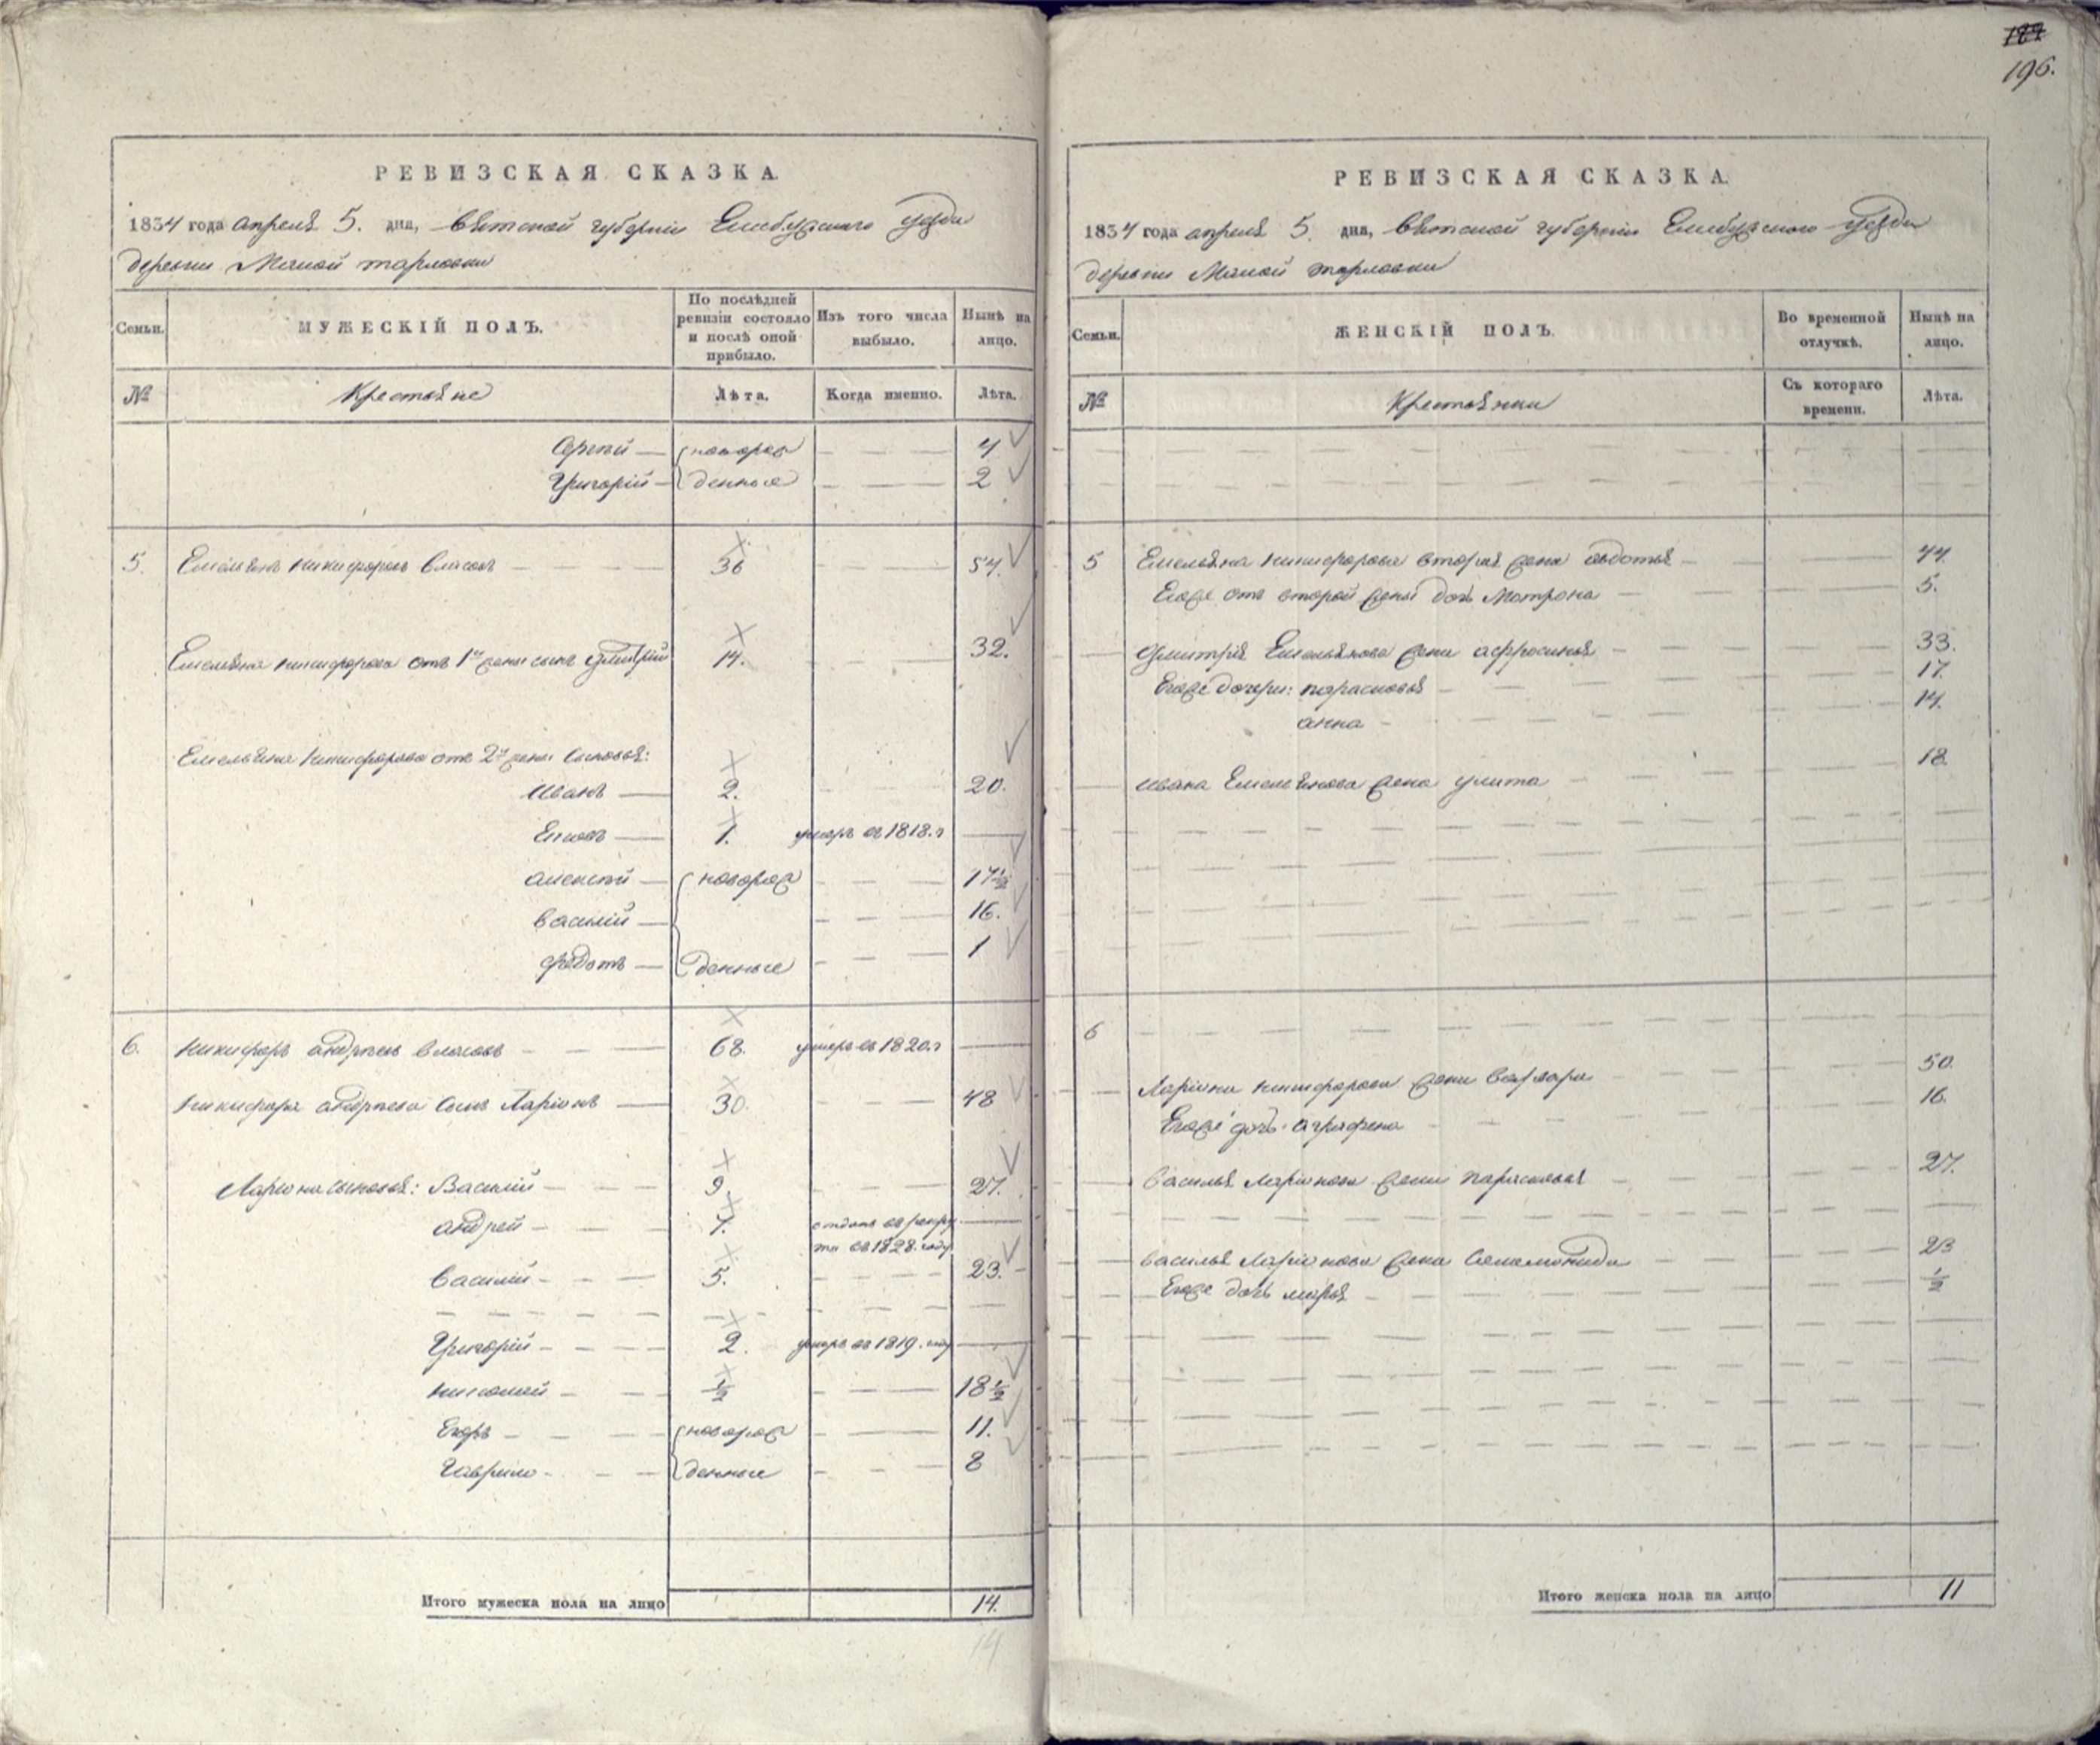 189
196.
РЕВИЗСКАЯ СКАЗКА.
1834 года апреля 5. дня, Вятской губернии Елабужского уезда
деревни Малой тарловки
Семьи.
МУЖЕСКІЙ ПОЛЪ.
По послѣдней ревизіи состояло и послѣ оной прибыло.
Изъ того числа выбыло.
Нынѣ на лицо.
№
Крестьяне
Лѣта.
Когда именно.
Лѣта.
Сергей — новорож — 4
Григорій — денные — 2
5. Емельянъ Никифоровъ Власовъ 36 54.
Емельяна Никифорова отъ 1й жены сынъ Дмитрій 14. 32.
Емельяна Никифорова отъ 2й жены сыновья:
Иванъ — 2. 20.
1. умеръ въ 1818. г
алексей — новорож 17½
василій — 16.
федотъ — денные 1
6. Никифоръ андреевъ власовъ 68. умеръ въ 1820. г
Никифора андреева сынъ Ларіонъ 30. 48
Лариона сыновья: Василій 9. 27.
андрей 7. отданъ въ рекру
ты въ 1828. году
василій 5. 23.
Григорій 2. умеръ въ 1819. году
николай ½ 18½
Егоръ новорож 11.
Гаврило денные 8
Итого мужеска пола на лицо 14.
14
РЕВИЗСКАЯ СКАЗКА.
1834 года апреля 5. дня, Вятской губернии Елабужского уезда
деревни Малой тарловки
Семьи.
ЖЕНСКІЙ ПОЛЪ.
Во временной отлучкѣ.
Нынѣ на лицо.
№
Крестьянки
Съ котораго времени.
Лѣта.
5 Емельяна Никифорова вторая жена авдотья 44.
Егоже отъ второй жены дочь Матрона 5.
Дмитрія Емельянова жена афросинья 33.
Егоже дочери: парасковья 17.
анна 14.
ивана Емельянова жена улита 18.
6
Ларіона Никифорова жена варвара 50.
Егоже дочь: аграфена 16.
василья Ларіонова жена парасковья 27.
василья Ларіонова жена 23
Егоже дочь марья ½
Итого женска пола на лицо 11